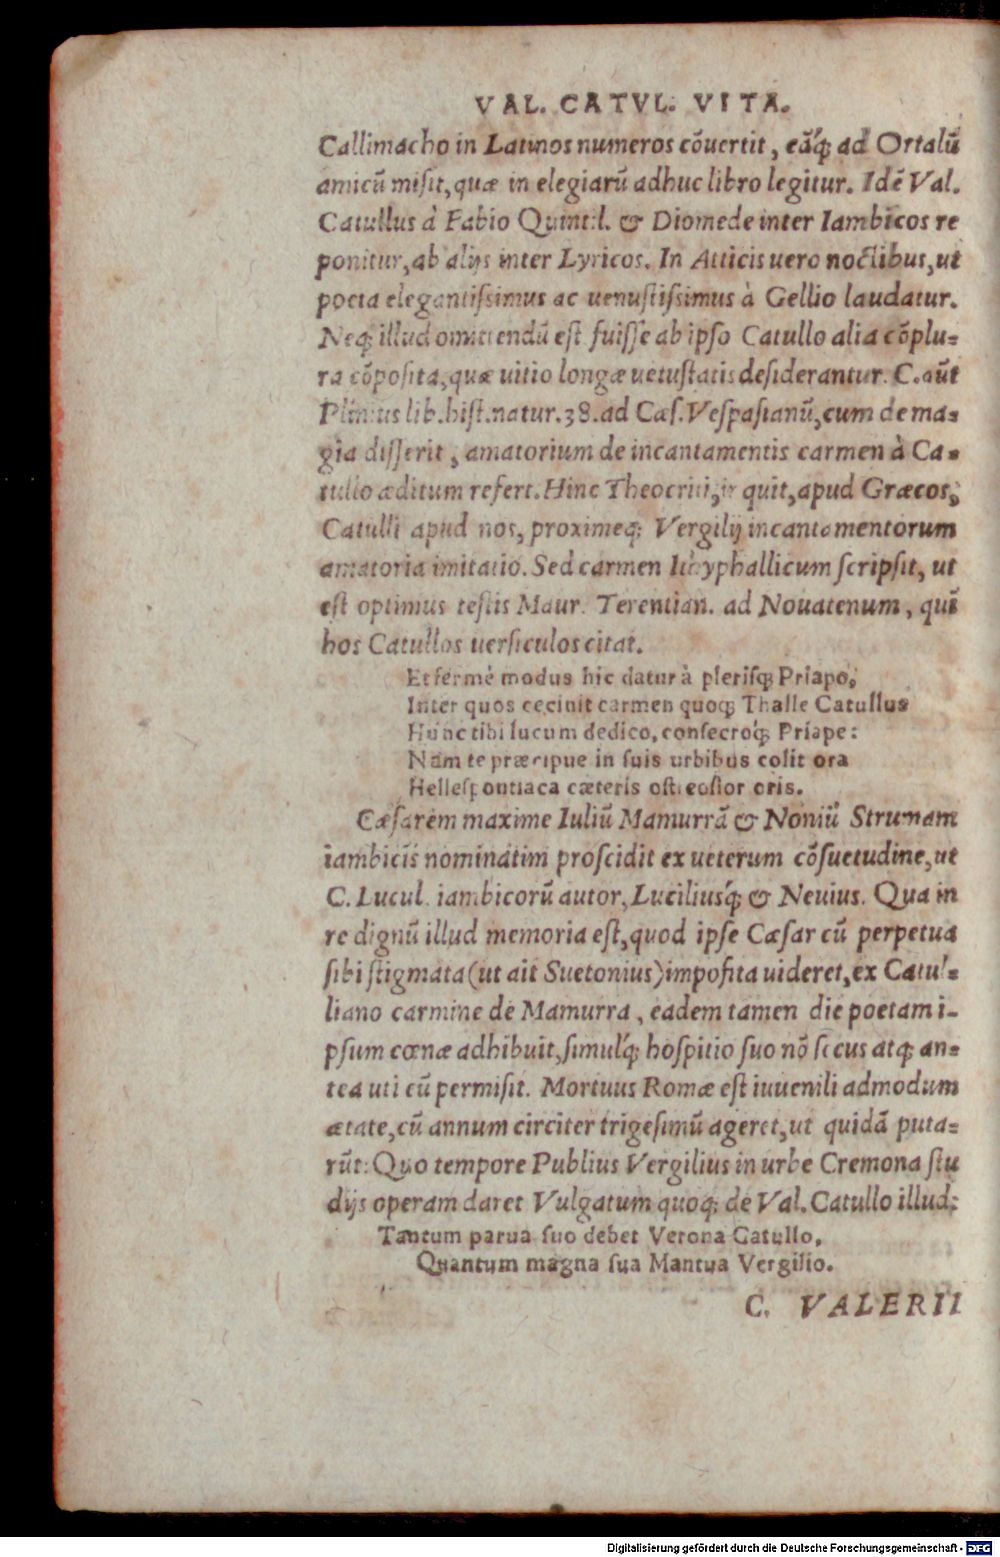 VAL. CATVL. VITA.
Callimacho in Latinos numeros cõuertit, eãq́; ad Ortalũ
amicũ misit, quæ in elegiarũ adhuc libro legitur. Idẽ Val.
Catullus à Fabio Quintil. & Diomede inter Iambicos re
ponitur, ab alijs inter Lyricos. In Atticis uero noctibus, ut
poeta elegantissimus ac uenustissimus à Gellio laudatur.
Neq; illud omittendũ est fuisse ab ipso Catullo alia cõplu-
ra cõposita, quæ uitio longæ uetustatis desiderantur. C. aũt
Plinius lib. hist. natur. 38. ad Cæs. Vespasianũ, cum de ma-
gia disserit, amatorium de incantamentis carmen à Ca-
tullo æditum refert. Hinc Theocriti, inquit, apud Græcos,
Catulli apud nos, proximeq; Vergilij incantamentorum
amatoria imitatio. Sed carmen Ithyphallicum scripsit, ut
est optimus testis Maur. Terentian. ad Nouatenum, quĩ
hos Catullos uersiculos citat.
Et fermè modus hic datur à plerisq; Priapo,
Inter quos cecinit carmen quoq; Thalle Catullus
Hunc tibi lucum dedico, consecroq́; Priape:
Nam te præcipue in suis urbibus colit ora
Hellespontiaca cæteris ostreosior oris.
Cæsarem maxime Iuliũ Mamurrã & Noniũ Strumam
iambicis nominatim proscidit ex ueterum cõsuetudine, ut
C. Lucul. iambicorũ autor, Luciliusq́; & Neuius. Qua in
re dignũ illud memoria est, quod ipse Cæsar cũ perpetua
sibi stigmata (ut ait Suetonius) imposita uideret, ex Catul-
liano carmine de Mamurra, eadem tamen die poetam i-
psum cœnæ adhibuit, simulq́; hospitio suo nõ secus atq; an-
tea uti cũ permisit. Mortuus Romæ est iuuenili admodum
ætate, cũ annum circiter trigesimũ ageret, ut quidã puta-
rũt: Quo tempore Publius Vergilius in urbe Cremona stu
dijs operam daret Vulgatum quoq; de Val. Catullo illud:
Tantum parua suo debet Verona Catullo,
Quantum magna sua Mantua Vergilio.
C. VALERII
Digitalisierung gefördert durch die Deutsche Forschungsgemeinschaft - DFG